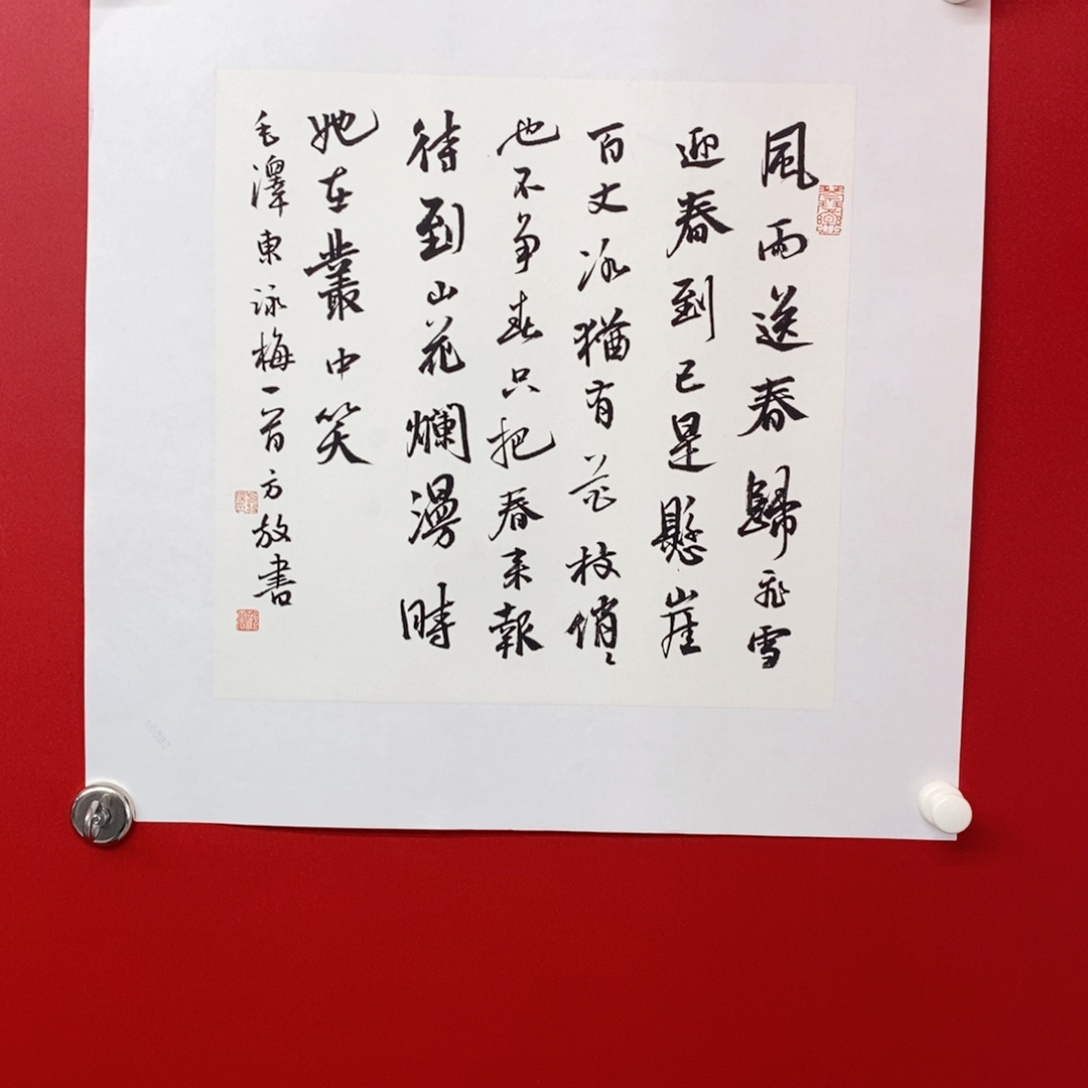 風雨送春歸飛雪
迎春到已是懸崖
百丈冰猶有花枝俏〻
也不争春只把春来報
待到山花爛漫時
她在叢中笑
毛澤東詠梅一首方放書